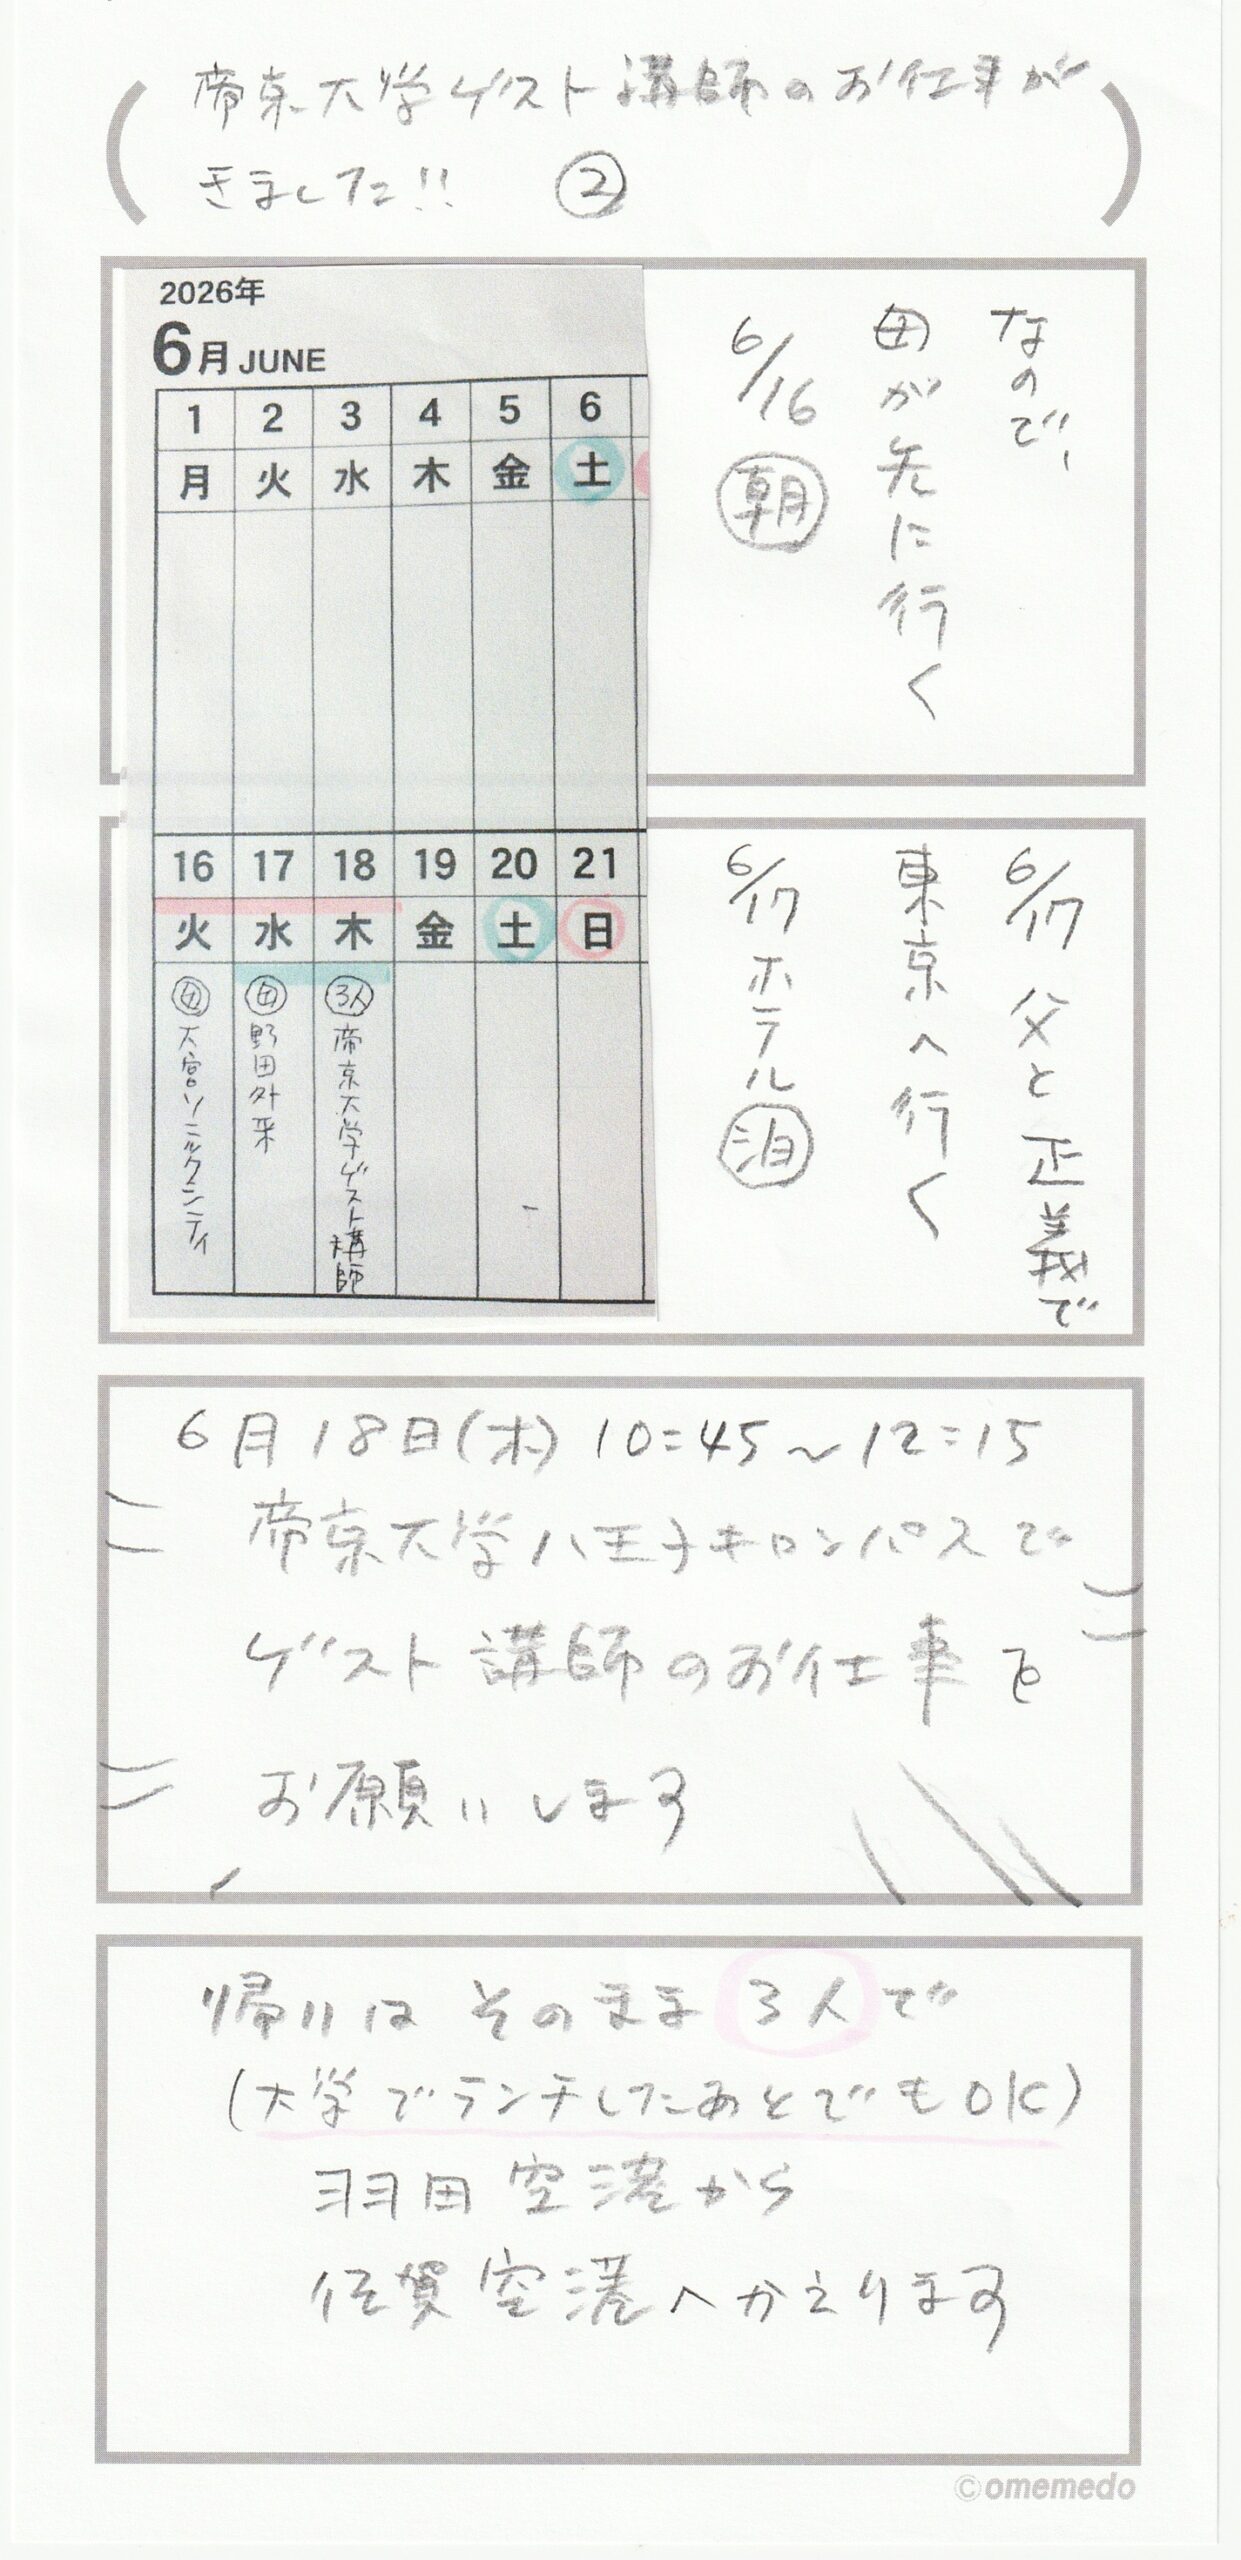 帝京大学ゲスト講師のお仕事が
きました!! ②
2026年
6月 JUNE
1 2 3 4 5 6
月 火 水 木 金 土
16 17 18 19 20 21
火 水 木 金 土 日
母 大宮ソニックシティ
母 野田外来
3人 帝京大学ゲスト講師
なので、
母が先に行く
6/16 朝
6/17 父と正義で
東京へ行く
6/17 ホテル泊
6月18日(木) 10:45～12:15
帝京大学八王子キャンパスで
ゲスト講師のお仕事を
お願いします
帰りはそのまま3人で
(大学でランチしたあとでもOK)
羽田空港から
佐賀空港へかえります
©omemedo